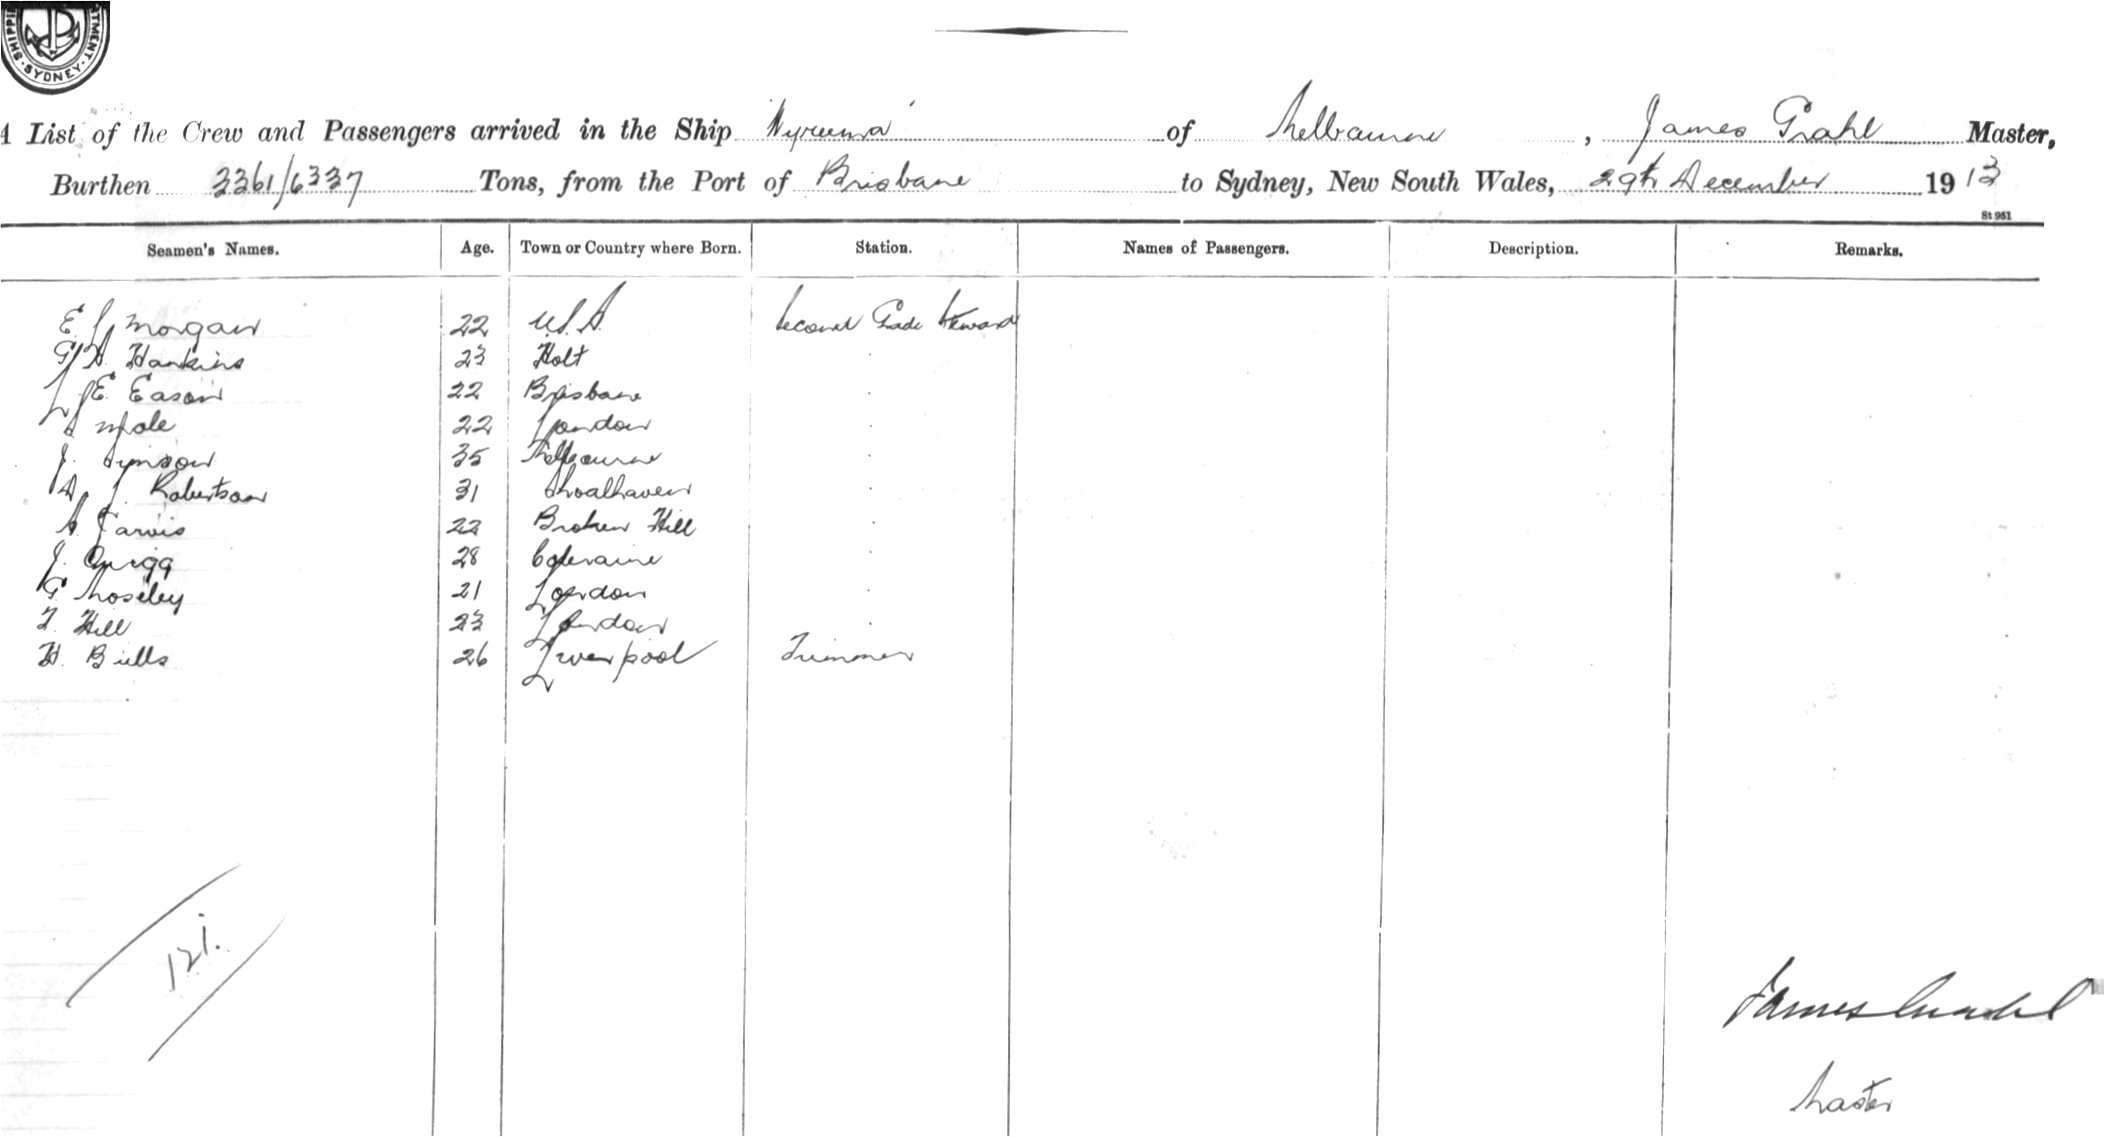 SHIPPI TMENT · SYDNEY ·
A List of the Crew and Passengers arrived in the Ship Wyreema of Melbourne, James Grahl Master,
Burthen 3361/6337 Tons, from the Port of Brisbane to Sydney, New South Wales, 29th December 1913
St 961
Seamen's Names. Age. Town or Country where Born. Station. Names of Passengers. Description. Remarks.
E J Morgan 22 U.S.A. Second Grade Steward
G H Hankins 23 Holt
L J E Eason 22 Brisbane
Mole 22 London
J. Synson 35 Melbourne
A J Robertson 31 Shoalhaven
A Jarvis 22 Broken Hill
J. Quigg 28 Coleraine
G Moseley 21 London
F. Hill 23 London
H. Bills 26 Liverpool Trimmer
121.
James Grahl
Master